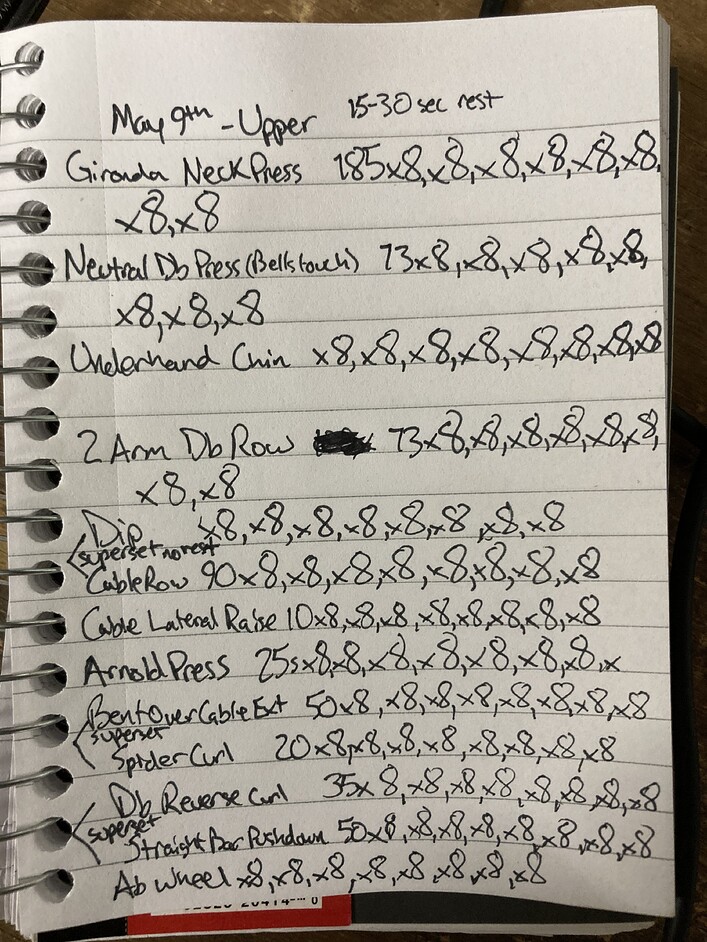 May 9th - Upper 15-30 sec rest
Gironda Neck Press 185x8, x8, x8, x8, x8, x8,
x8, x8
Neutral Db Press (Bells touch) 73x8, x8, x8, x8, x8,
x8, x8, x8
Underhand Chin x8, x8, x8, x8, x8, x8, x8, x8
2 Arm Db Row 73x8, x8, x8, x8, x8, x8,
x8, x8
Dip x8, x8, x8, x8, x8, x8, x8, x8
superset no rest
Cable Row 90x8, x8, x8, x8, x8, x8, x8, x8
Cable Lateral Raise 10x8, x8, x8, x8, x8, x8, x8, x8
Arnold Press 25s x8, x8, x8, x8, x8, x8, x8, x
Bent Over Cable Ext 50x8, x8, x8, x8, x8, x8, x8, x8
superset
Spider Curl 20x8, x8, x8, x8, x8, x8, x8, x8
Db Reverse Curl 35x8, x8, x8, x8, x8, x8, x8, x8
superset
Straight Bar Pushdown 50x8, x8, x8, x8, x8, x8, x8, x8
Ab Wheel x8, x8, x8, x8, x8, x8, x8, x8